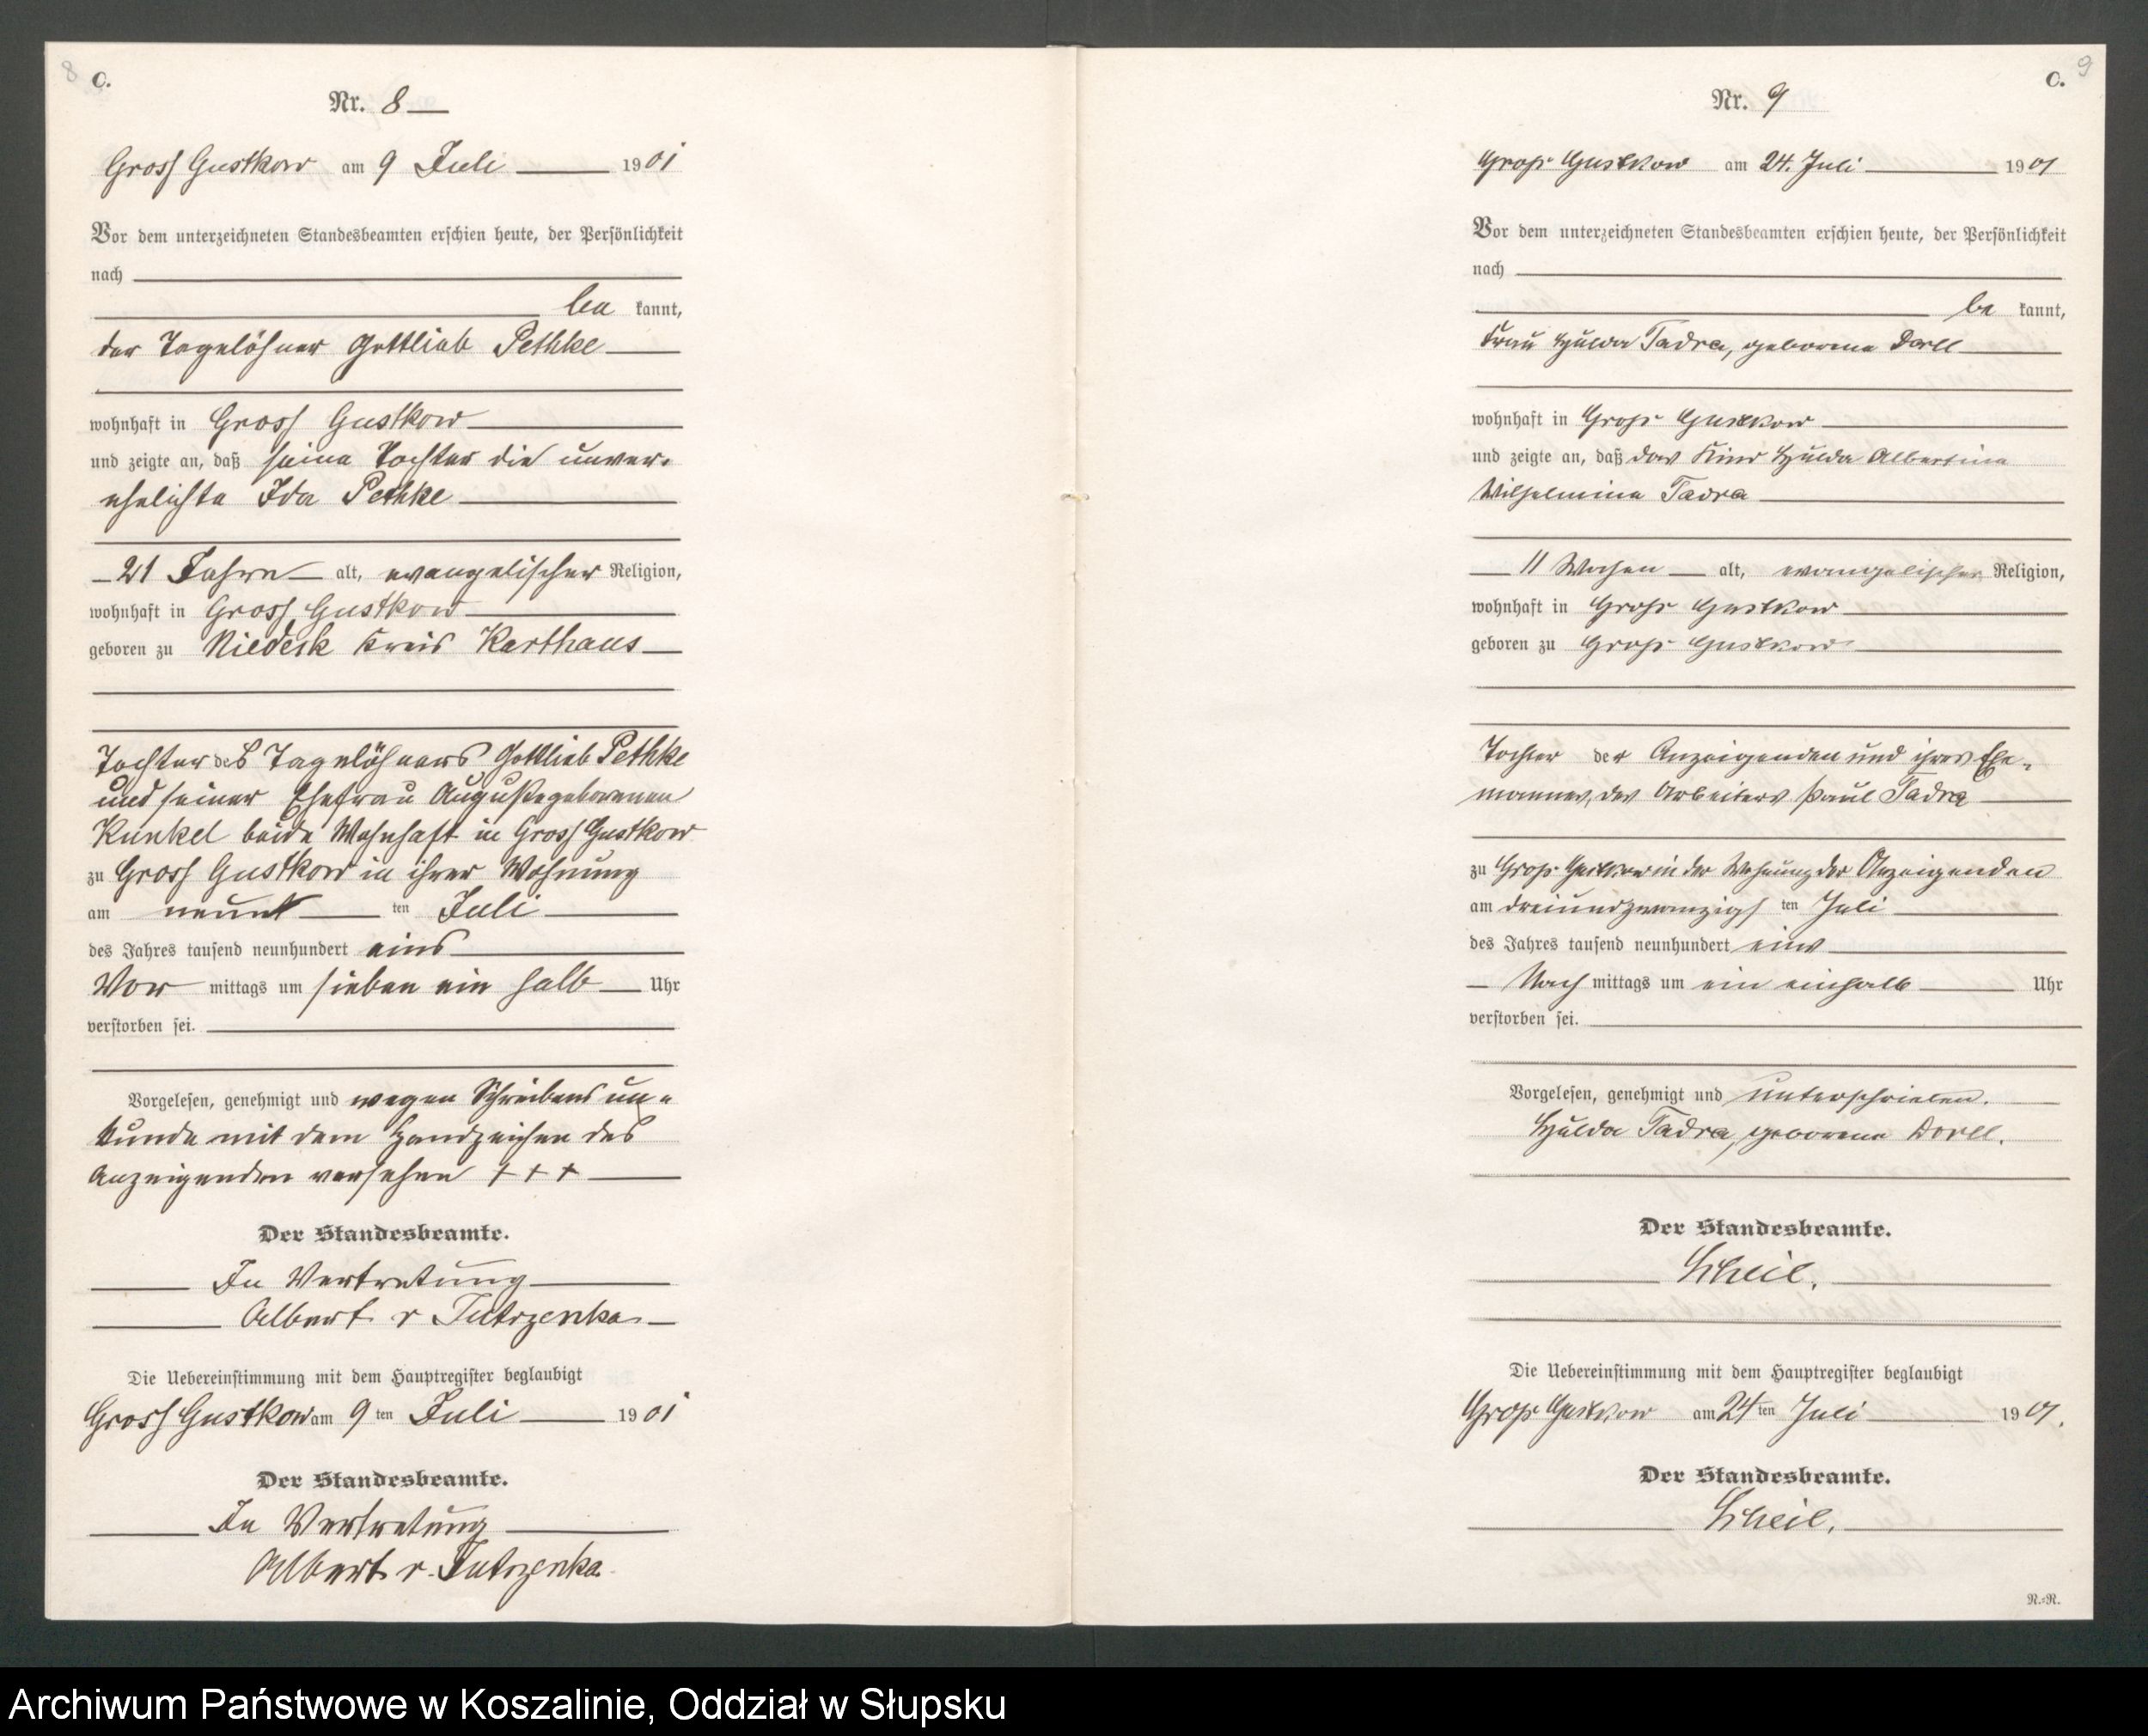 8
C.
Nr. 8
Gross Gustkow am 9 Juli 1901
Vor dem unterzeichneten Standesbeamten erschien heute, der Persönlichkeit
nach
be kannt,
der Tagelöhner Gottlieb Pethke
wohnhaft in Gross Gustkow
und zeigte an, daß seine Tochter die unver-
ehelichte Ida Pethke
21 Jahre alt, evangelischer Religion,
wohnhaft in Gross Gustkow
geboren zu Niedeck Kreis Karthaus
Tochter des Tagelöhners Gottlieb Pethke
und seiner Ehefrau Auguste geborenen
Kunkel beide Wohnhaft in Gross Gustkow
zu Gross Gustkow in ihrer Wohnung
am neunt ten Juli
des Jahres tausend neunhundert eins
Vor mittags um sieben ein halb Uhr
verstorben sei.
Vorgelesen, genehmigt und wegen Schreibens un-
kunde mit dem Handzeichen des
Anzeigenden versehen + + +
Der Standesbeamte.
In Vertretung
Albert v Jutrzenka
Die Uebereinstimmung mit dem Hauptregister beglaubigt
Gross Gustkow am 9 ten Juli 1901
Der Standesbeamte.
In Vertretung
Albert v. Jutrzenka
9
C.
Nr. 9
Groß Gustkow am 24. Juli 1901
Vor dem unterzeichneten Standesbeamten erschien heute, der Persönlichkeit
nach
be kannt,
Frau Hulda Tadra, geborene Dorll
wohnhaft in Groß Gustkow
und zeigte an, daß das Kind Hulda Albertine
Wilhelmine Tadra
11 Wochen alt, evangelischer Religion,
wohnhaft in Groß Gustkow
geboren zu Groß Gustkow
Tochter der Anzeigenden und ihres Ehe-
mannes, des Arbeiters Paul Tadra
zu Groß Gustkow in der Wohnung der Anzeigenden
am dreiundzwanzigs ten Juli
des Jahres tausend neunhundert eins
Nach mittags um ein einhalb Uhr
verstorben sei.
Vorgelesen, genehmigt und unterschrieben.
Hulda Tadra, geborene Dorll.
Der Standesbeamte.
Scheil.
Die Uebereinstimmung mit dem Hauptregister beglaubigt
Groß Gustkow am 24 ten Juli 1901.
Der Standesbeamte.
Scheil.
N.=R.
Archiwum Państwowe w Koszalinie, Oddział w Słupsku